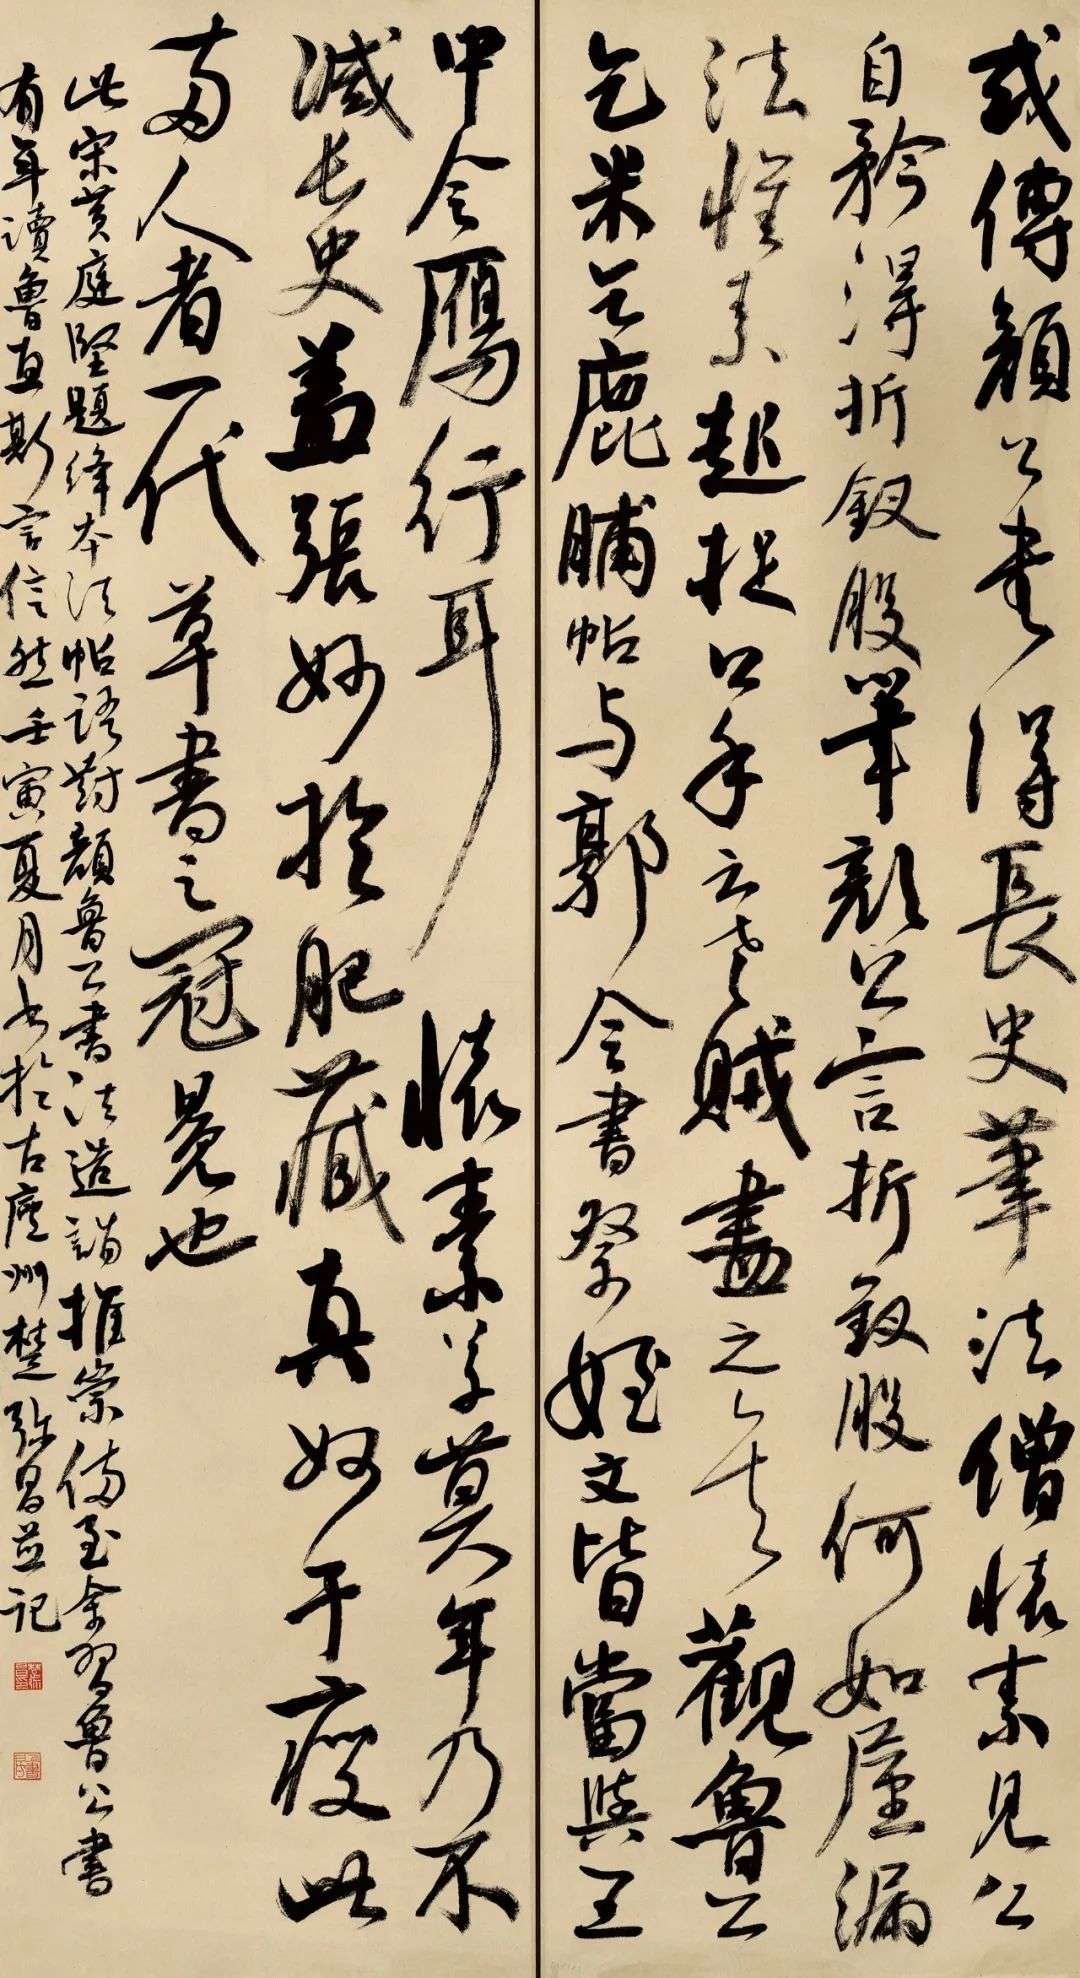 或傳顏公書得長史筆法僧懷素見公
自矜得折釵股筆顏公言折釵股何如屋漏
法懷素起捉公手云老賊盡之矣觀魯公
乞米乞鹿脯帖与郭令書祭姪文皆當與王
中令雁行耳懷素草莫年乃不
減長史盖張妙於肥藏真妙于瘦此
两人者一代草書之冠冕也
此宋黄庭堅題絳本法帖語對顏魯公書法造詣推崇備至余習魯公書
有年讀魯直斯言信然壬寅夏月書於古廬州楚弥昌並记